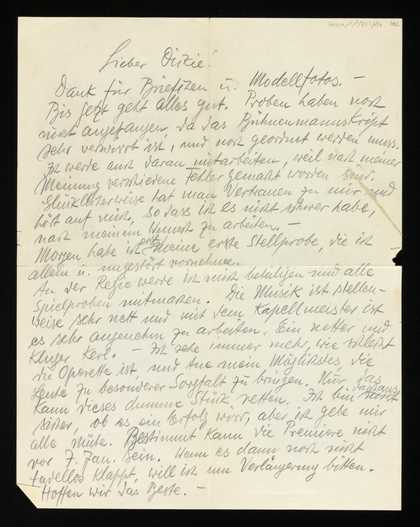 Lieber Dizie!
Dank für Briefszen u. Modellfotos. –
Bis jetzt geht alles gut. Proben haben noch
nicht angefangen, da das Bühnenmanuskript
sehr verwirrt ist, und noch geordnet werden muss.
Ich werde auch daran mitarbeiten, weil nach meiner
Meinung verschiedene Fehler gemacht worden sind.
Glücklicherweise hat man Vertrauen zu mir und
hört auf mich, so dass ich es nicht schwer habe,
nach meinem Wunsch zu arbeiten. –
Morgen habe ich erst meine erste Stellprobe, die ich –
allein u. ungestört vornehme.
An der Regie werde ich mich beteiligen und alle
Spielproben mitmachen. Die Musik ist stellen-
weise sehr nett und mit dem Kapellmeister ist
es sehr angenehm zu arbeiten. Ein netter und
kluger Kerl. – Ich sehe immer mehr, wie schlecht
die Operette ist und tue mein Möglichstes, die
Leute zu besonderer Sorgfalt zu bringen. Nur das
kann dieses dumme Stück retten. Ich bin nicht
sicher, ob es ein Erfolg wird, aber ich gebe mir
alle Mühe. Bestimmt kann die Premiere nicht
vor 7. Jan. sein. Wenn es dann noch nicht
tadellos klappt, will ich um Verlängerung bitten.
Hoffen wir das Beste. –